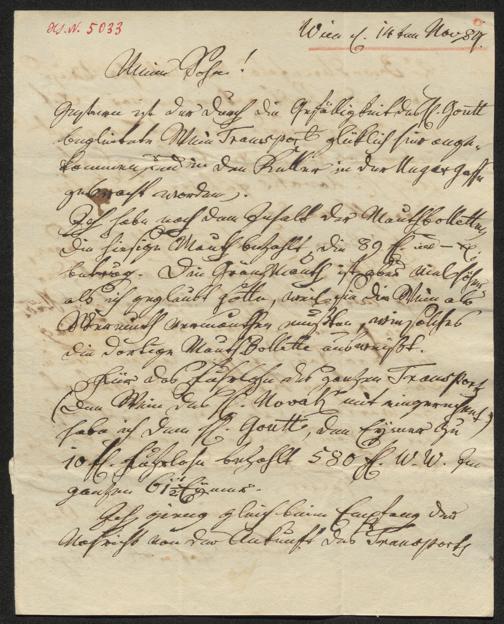 H.I.N. 5033
Wien d. 14ten Nov 89.
Meine Söhne!
Gestern ist der durch die Gefälligkeit des H. Goutt
begleitete Wein Transport glücklich hier ange-
kommen und in den Keller in der Ungargasse
gebracht worden.
Ich habe nach dem Inhalt der Mauthbollette,
die hiesige Mauth bezahlt, die 89 f. – x.
betrug. Die Gränzmauth ist aber viel höher
als ich geglaubt hätte, weil sie die Wein als
Wermuth vermauthen mußten, wie solches
die dortige Mauth Bollette ausweiset.
Für das Fuhrlohn des ganzen Transports
(den Wein des H. Novak mit eingerechnet)
habe ich dem H. Goutt, den Eymer zu
10 f. Fuhrlohn bezahlt 580 f. W. W. Im
ganzen 61 1/2 Eymer.
Ich gieng gleich beim Empfang der
Nachricht von der Ankunft des Transports